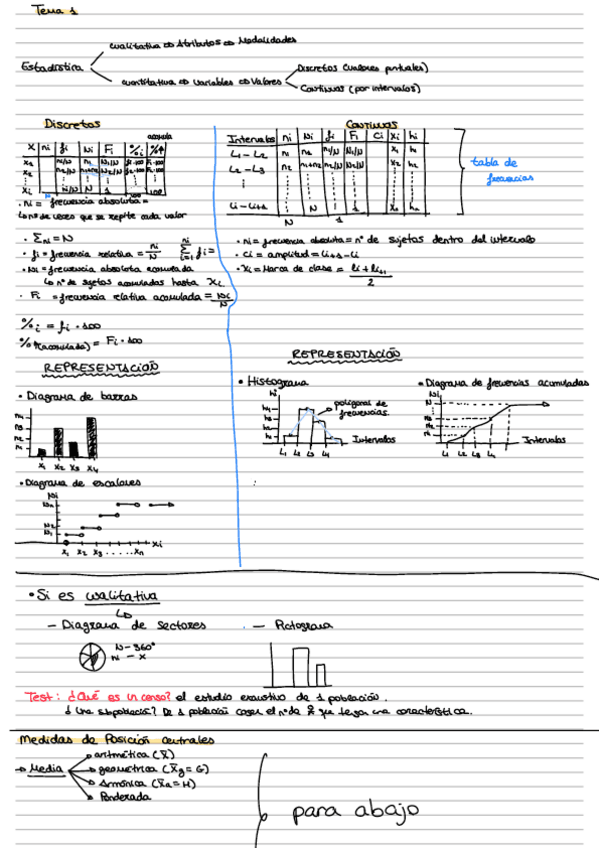 Tema 1
cualitativa ⇨ Atributos ⇨ Modalidades
Estadística
cuantitativa ⇨ Variables ⇨ Valores
Discretas (valores puntuales)
Continuas (por intervalos)
Discretas
acumula
X ni fi Ni Fi %i %↑
x1 n1/N n1 N1/N f1·100 F1·100
x2 n2/N n1+n2 N2/N f2·100 F2·100
xi ni/N N 1 100 100
N
· ni = frecuencia absoluta =
↳ nº de veces que se repite cada valor
· Σni = N
· fi = frecuencia relativa = ni/N
· Ni = frecuencia absoluta acumulada
↳ nº de sujetos acumulados hasta xi
· Fi = frecuencia relativa acumulada = Ni/N
%i = fi · 100
%↑(acumulado) = Fi · 100
REPRESENTACIÓN
· Diagrama de barras
n4
n3
n2
n1
x1 x2 x3 x4
· Diagrama de escalares
Ni
Nn
N2
N1
x1 x2 x3 ..... xn
xi
Continuas
Intervalos ni Ni fi Fi Ci xi hi
L1 - L2 n1 n1 n1/N N1/N x1 h1
L2 - L3 n2 n1+n2 n2/N N2/N x2 h2
Li - Li+1 N 1 xn hn
N
tabla de
frecuencias
· ni = frecuencia absoluta = nº de sujetos dentro del intervalo
· Ci = amplitud = Li+1 - Li
· Xi = Marca de clase = Li + Li+1 / 2
REPRESENTACIÓN
· Histograma
hi
poligonal de
frecuencias
Intervalos
L1 L2 L3 L4
· Diagrama de frecuencias acumuladas
Ni
N
Intervalos
L1 L2 L3 L4
· Si es cualitativa
↳
- Diagrama de sectores
N - 360º
ni - x
- Pictograma
Test: ¿Qué es un censo? el estudio exaustivo de 1 población.
¿Una subpoblación? De 1 población coger el nº de que tenga una característica.
Medidas de Posición centrales
→ Media
aritmética (X̄)
geométrica (X̄g = G)
Armónica (X̄a = H)
Ponderada
para abajo